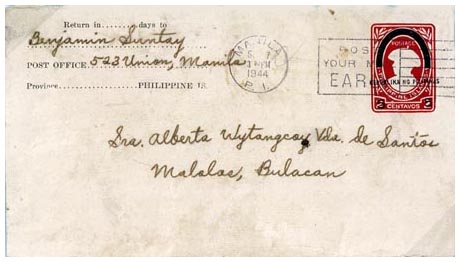 Return in ........ days to
Benjamin Suntay
POST OFFICE 523 Union, Manila
Province ........ PHILIPPINE IS.
MANILA
1 PM
1944
P. I.
POS
YOUR M
EAR
POSTAGE
REPUBLIKA NG PILIPINAS
PHILIPPINE ISLANDS
2 CENTAVOS 2
Sra. Alberta Uytangcoy Vda. de Santos
Malolos, Bulacan